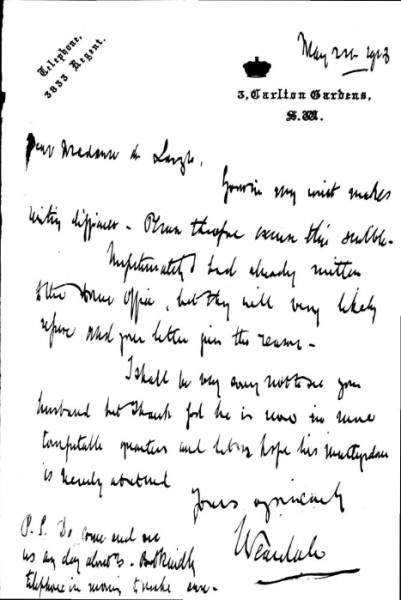 Telephone.
3833 Regent.
May 1913
3, Carlton Gardens,
S.W.
Dear Madame de
my wrist makes
writing difficult - Please therefore excuse this scribble -
Unfortunately I had already written
to the Home Office, but they will very likely
refuse and your letter gives the reason -
I shall be very sorry not to see your
husband but thank God he is now in more
comfortable quarters and let us hope his martyrdom
is nearly at an end
Yours sincerely
Weardale
P.S. Do come and see
us any day about 5 - But kindly
telephone in morning to make sure -